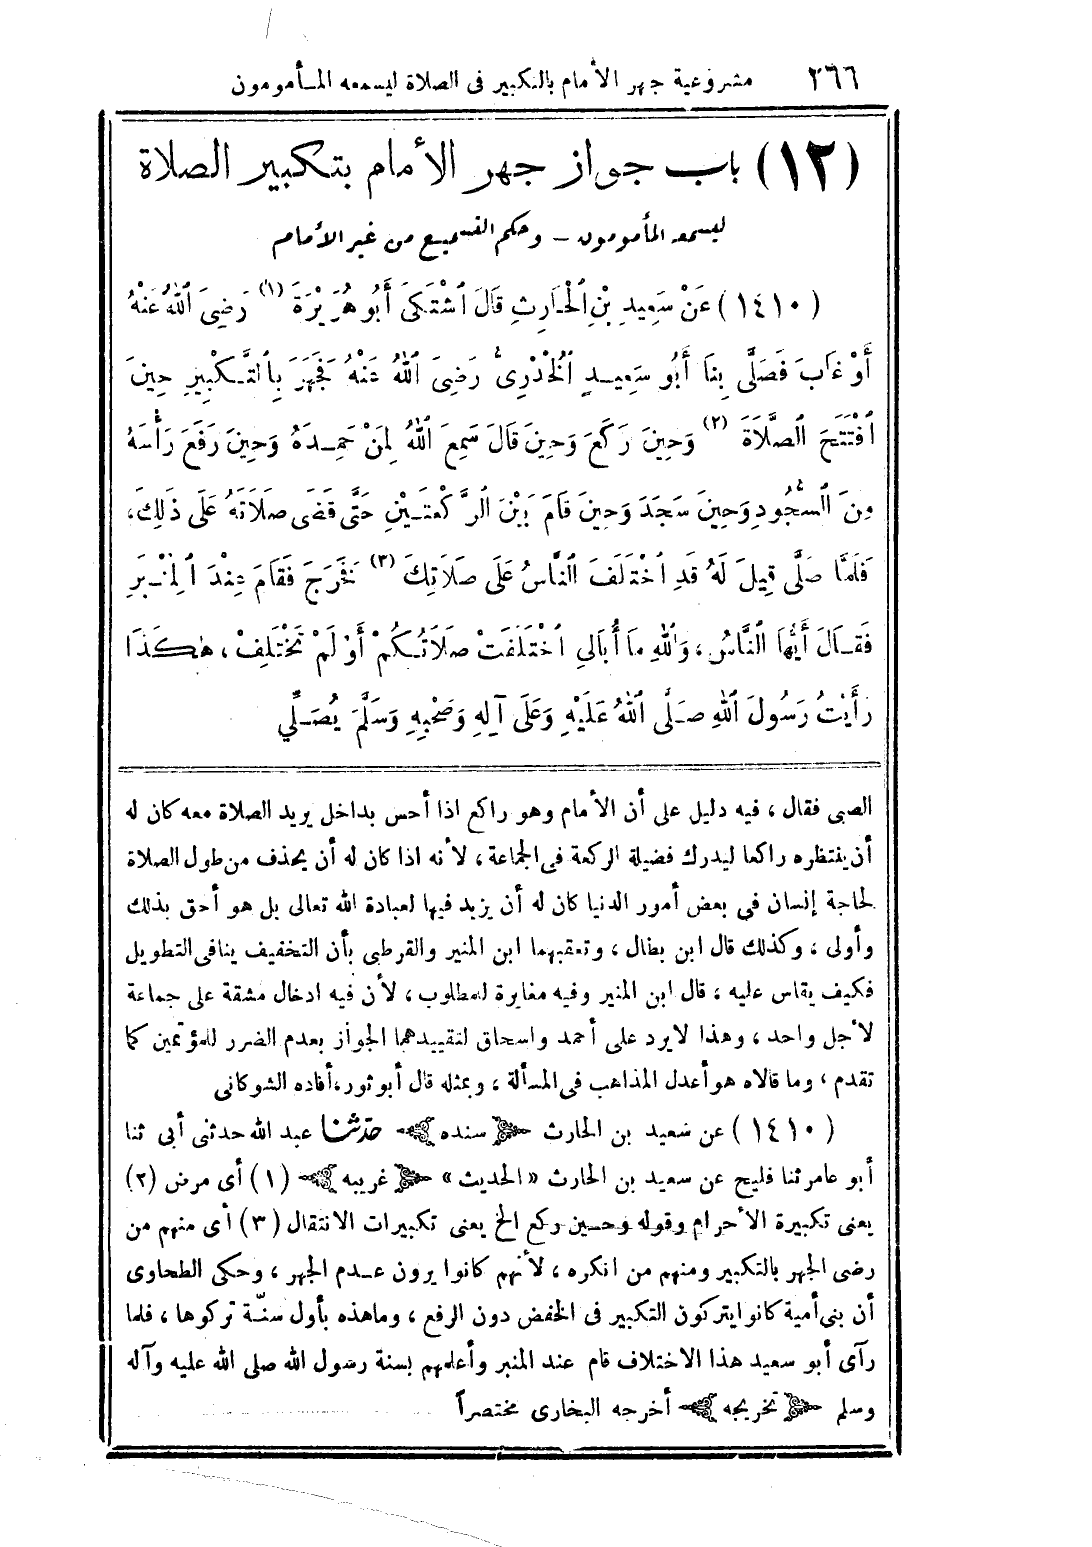 ٢٦٦ مشروعية جهر الأمام بالتكبير فى الصلاة ليسمعه المـأمومون
(١٢) باب جواز جهر الأمام بتكبير الصلاة
ليسمعه المأمومون – وحكم التسميع من غير الأمام
(١٤١٠) عَنْ سَعِيدِ بْنِ الْحَارِثِ قَالَ اشْتَكَى أَبُو هُرَيْرَةَ (١) رَضِىَ اللهُ عَنْهُ
أَوْ غَابَ فَصَلَّى بِنَا أَبُو سَعِيدٍ الْخُدْرِىُّ رَضِىَ اللهُ عَنْهُ فَجَهَرَ بِالتَّكْبِيرِ حِينَ
افْتَتَحَ الصَّلَاةَ (٢) وَحِينَ رَكَعَ وَحِينَ قَالَ سَمِعَ اللهُ لِمَنْ حَمِدَهُ وَحِينَ رَفَعَ رَأْسَهُ
مِنَ السُّجُودِ وَحِينَ سَجَدَ وَحِينَ قَامَ بَيْنَ الرَّكْعَتَيْنِ حَتَّى قَضَى صَلَاتَهُ عَلَى ذَلِكَ،
فَلَمَّا صَلَّى قِيلَ لَهُ قَدِ اخْتَلَفَ النَّاسُ عَلَى صَلَاتِكَ (٣) فَخَرَجَ فَقَامَ عِنْدَ الْمِنْبَرِ
فَقَالَ أَيُّهَا النَّاسُ، وَاللهِ مَا أُبَالِى اخْتَلَفَتْ صَلَاتُكُمْ أَوْ لَمْ تَخْتَلِفْ، هٰكَذَا
رَأَيْتُ رَسُولَ اللهِ صَلَّى اللهُ عَلَيْهِ وَعَلَى آلِهِ وَصَحْبِهِ وَسَلَّمَ يُصَلِّي
الصبى فقال، فيه دليل على أن الأمام وهو راكع اذا أحس بداخل يريد الصلاة معه كان له
أن ينتظره راكعا ليدرك فضيلة الركعة فى الجماعة، لأنه اذا كان له أن يحذف من طول الصلاة
لحاجة إنسان في بعض أمور الدنيا كان له أن يزيد فيها لعبادة الله تعالى بل هو أحق بذلك
وأولى، وكذلك قال ابن بطال، وتعقبهما ابن المنير والقرطبى بأن التخفيف ينافى التطويل
فكيف يقاس عليه، قال ابن المنير وفيه مغايرة للمطلوب، لأن فيه ادخال مشقة على جماعة
لأجل واحد، وهذا لا يرد على أحمد واسحاق لتقييدهما الجواز بعدم الضرر للمؤتمين كما
تقدم، وما قالاه هو أعدل المذاهب فى المسألة، وبمثله قال أبو ثور، أفاده الشوكانى
(١٤١٠) عن سعيد بن الحارث ﴿ سنده ﴾ حدّثنا عبد الله حدثنى أبى ثنا
أبو عامر ثنا فليح عن سعيد بن الحارث «الحديث» ﴿ غريبه ﴾ (١) أى مرض (٢)
يعنى تكبيرة الأحرام وقوله وحين ركع الخ يعنى تكبيرات الانتقال (٣) أى منهم من
رضى الجهر بالتكبير ومنهم من انكره، لأنهم كانوا يرون عدم الجهر، وحكى الطحاوى
أن بنى أمية كانوا يتركون التكبير فى الخفض دون الرفع، وما هذه بأول سنّة تركوها، فلما
رآى أبو سعيد هذا الاختلاف قام عند المنبر وأعلمهم بسنة رسول الله صلى الله عليه وآله
وسلم ﴿ تخريجه ﴾ أخرجه البخارى مختصراً